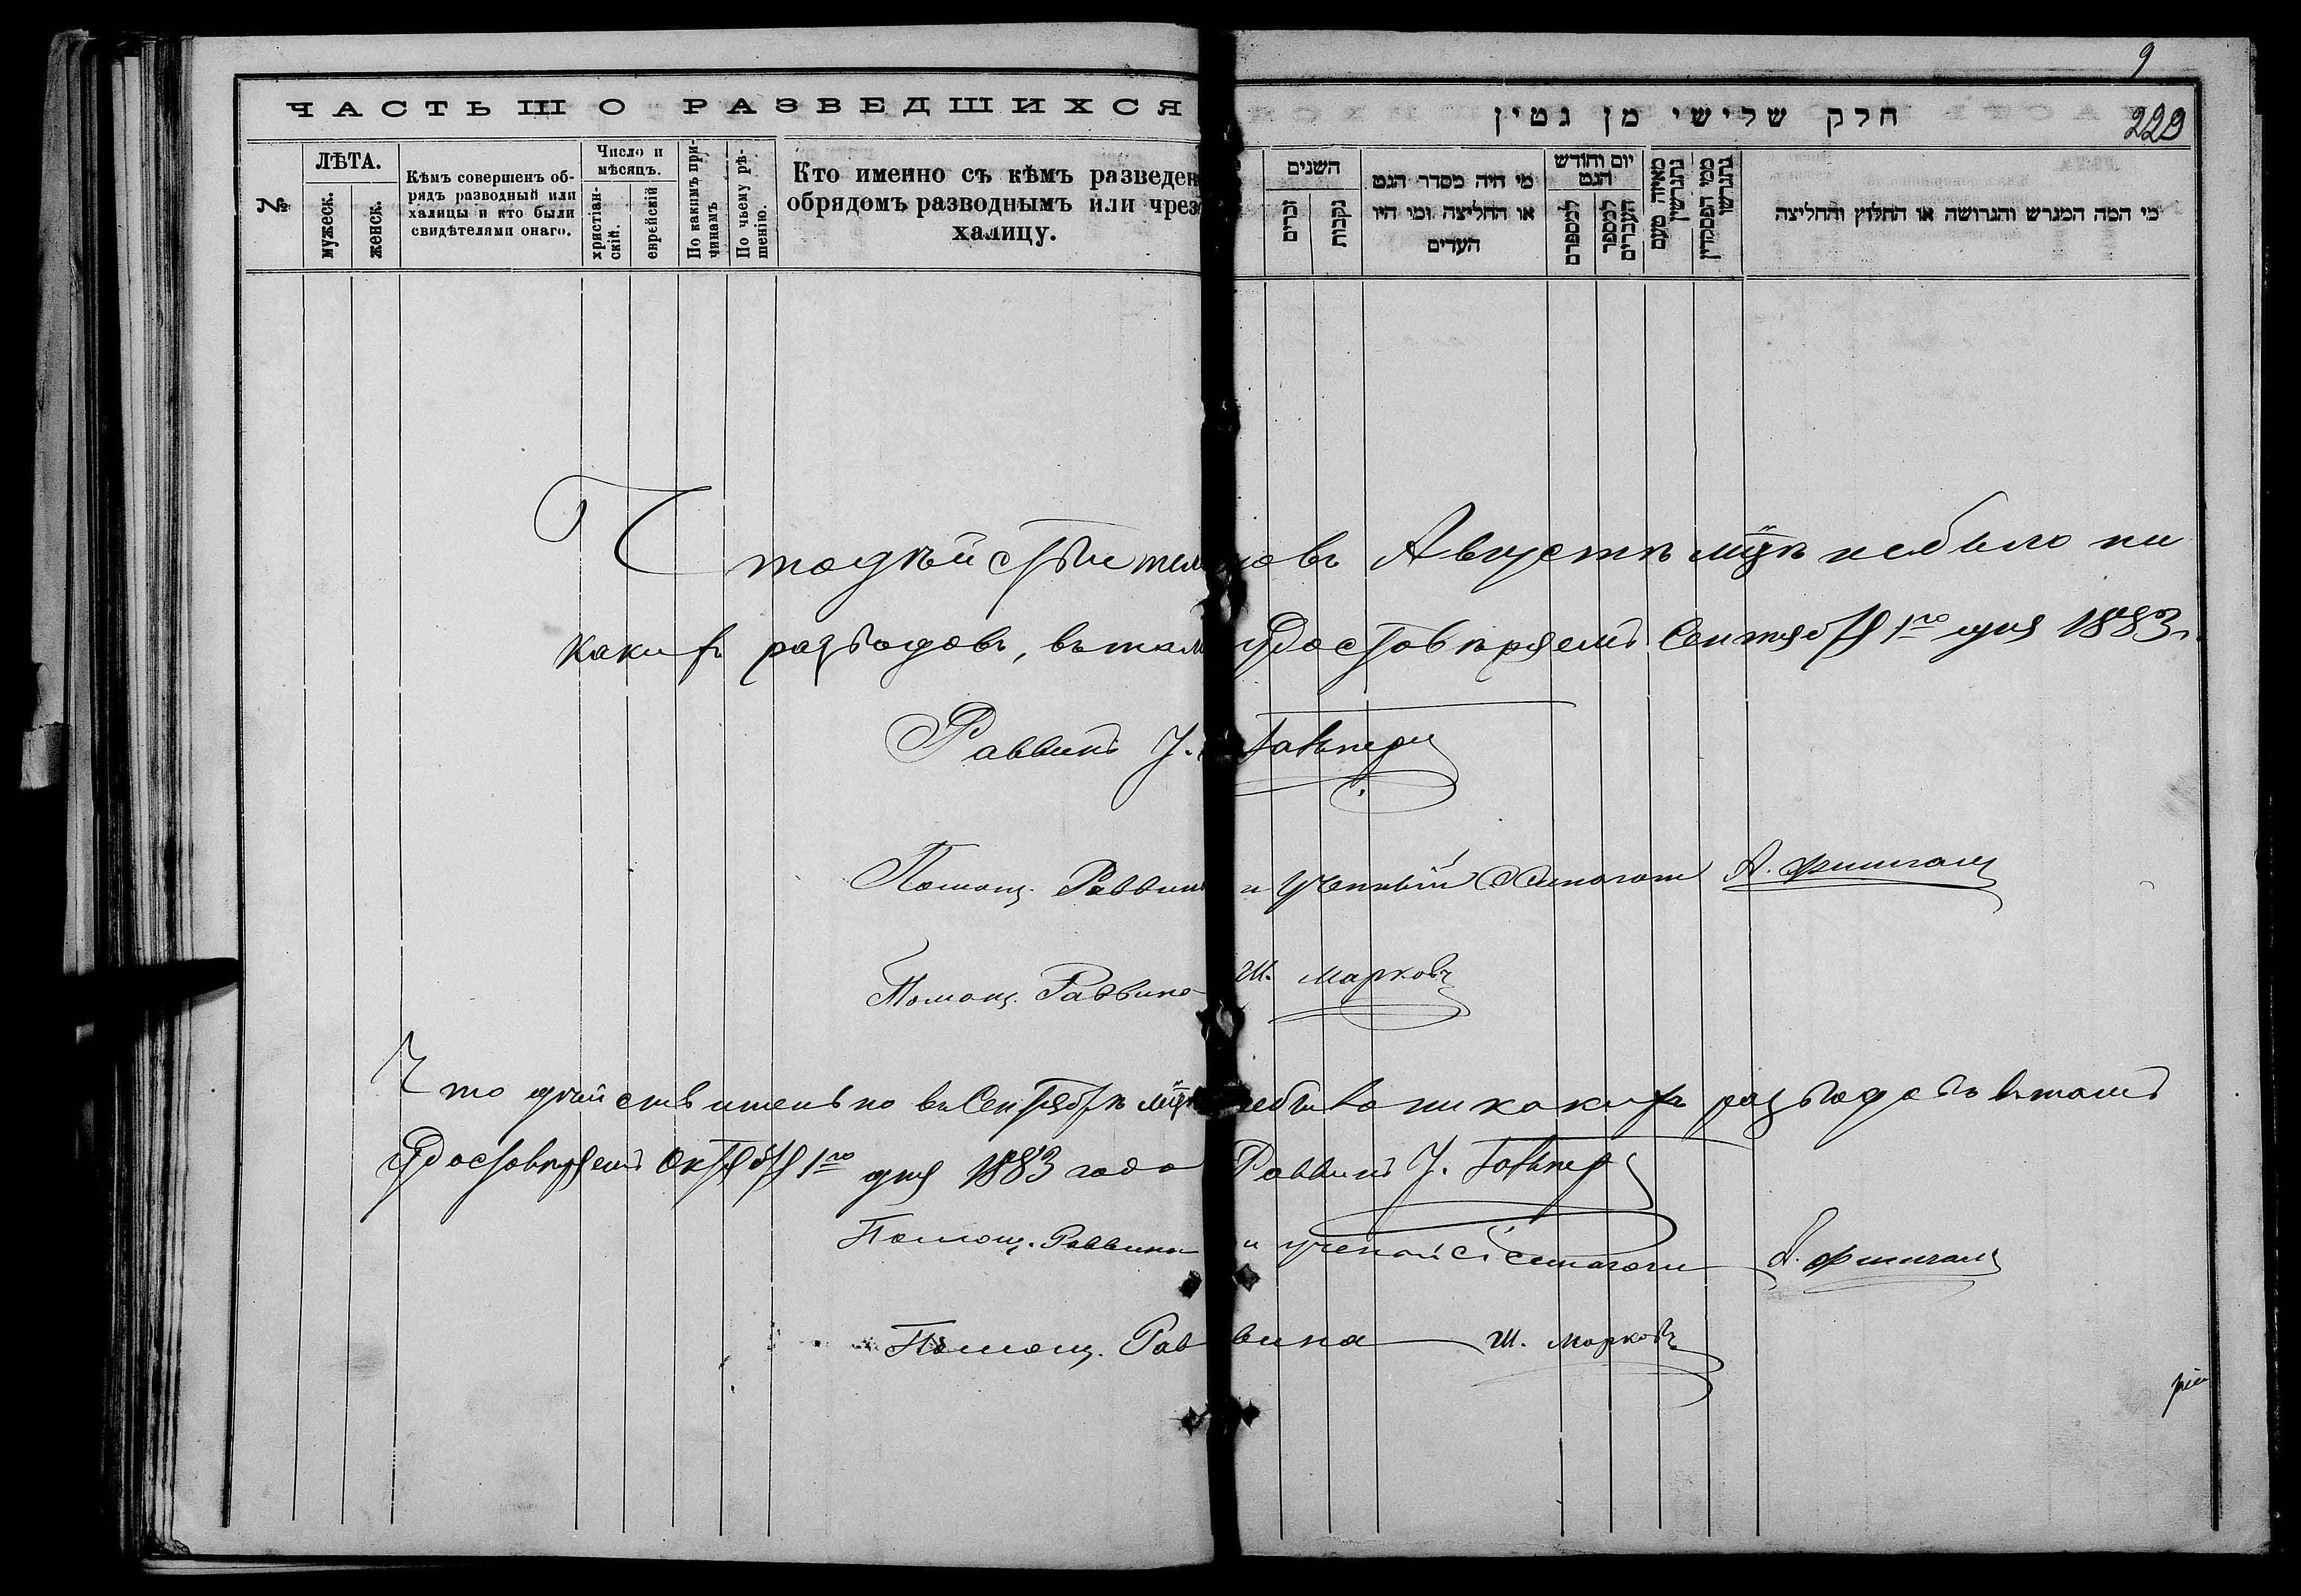 9
229
ЧАСТЬ III О РАЗВЕДШИХСЯ
חלק שלישי מן גטין
№
ЛѢТА.
мужеск.
женск.
Кѣмъ совершенъ об-
рядъ разводный или
халицы и кто были
свидѣтелями онаго.
Число и
мѣсяцъ.
христіан-
скій.
еврейскій
По какимъ при-
чинамъ
По чьему рѣ-
шенію.
Кто именно съ кѣмъ разведен
обрядомъ разводнымъ или чрез
халицу.
השנים
זכרים
נקבות
מי היה מסדר הגט
או החליצה ומי היו
העדים
יום וחודש
הגט
למספרם
למספר
העברים
מאיזה טעם
נתגרשין
ממי הפסק דין
נתגרשו
מי המה המגרש והגרושה או החלוץ והחליצה
Что дѣйствительно въ Августѣ мцѣ небыло ни
какихъ разводовъ, въ томъ удостовѣряемъ Сентября 1го дня 1883 г.
Раввинъ
Помощ. Раввина и ученый А.
Помощ. Раввина Ш. Марковъ
Что дѣйствительно въ Сентябрѣ мцѣ небыло никакихъ разводовъ въ томъ
Удостовѣряемъ Октября 1го дня 1883 года Раввинъ
Помощ. Раввина и ученый
Помощ. Раввина Ш. Марковъ